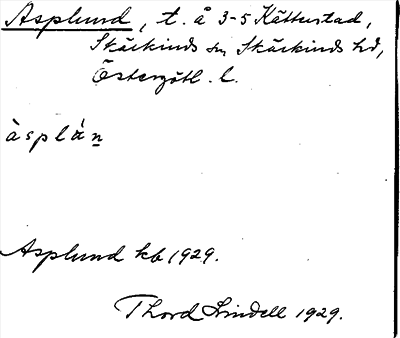 Asplund, t. å 3-5 Kättestad,
Skärkinds sn, Skärkinds hd,
Östergötl. l.
àsplán
Asplund kb 1929.
Thord Lindell 1929.